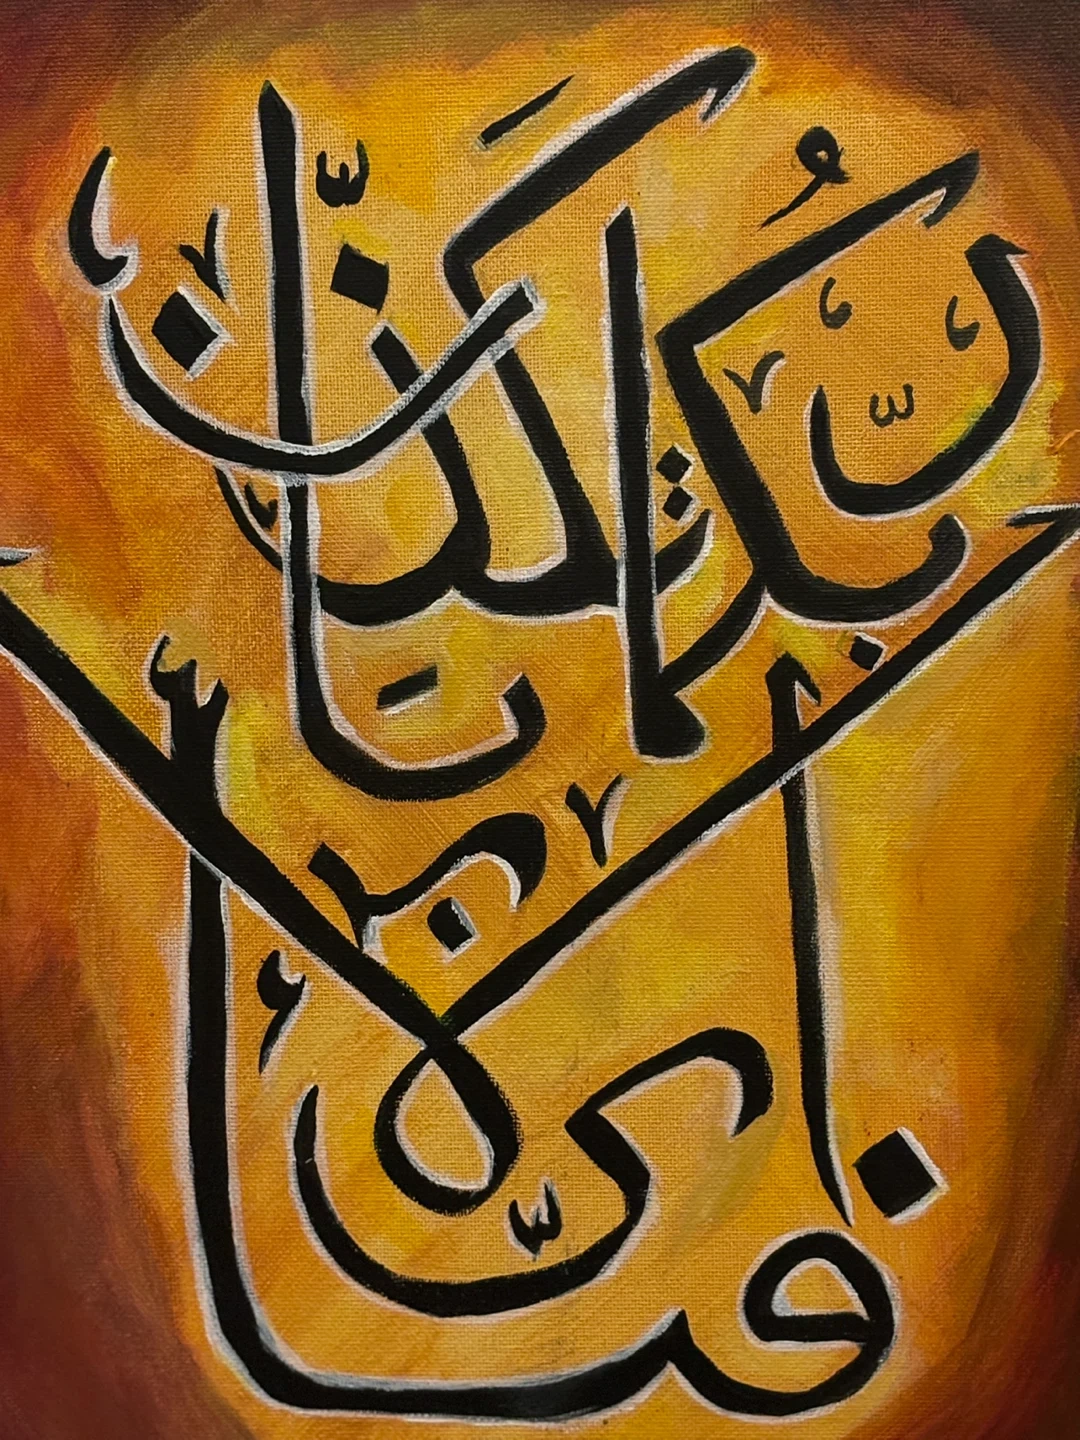 فبأي آلاء
ربكما تكذبان